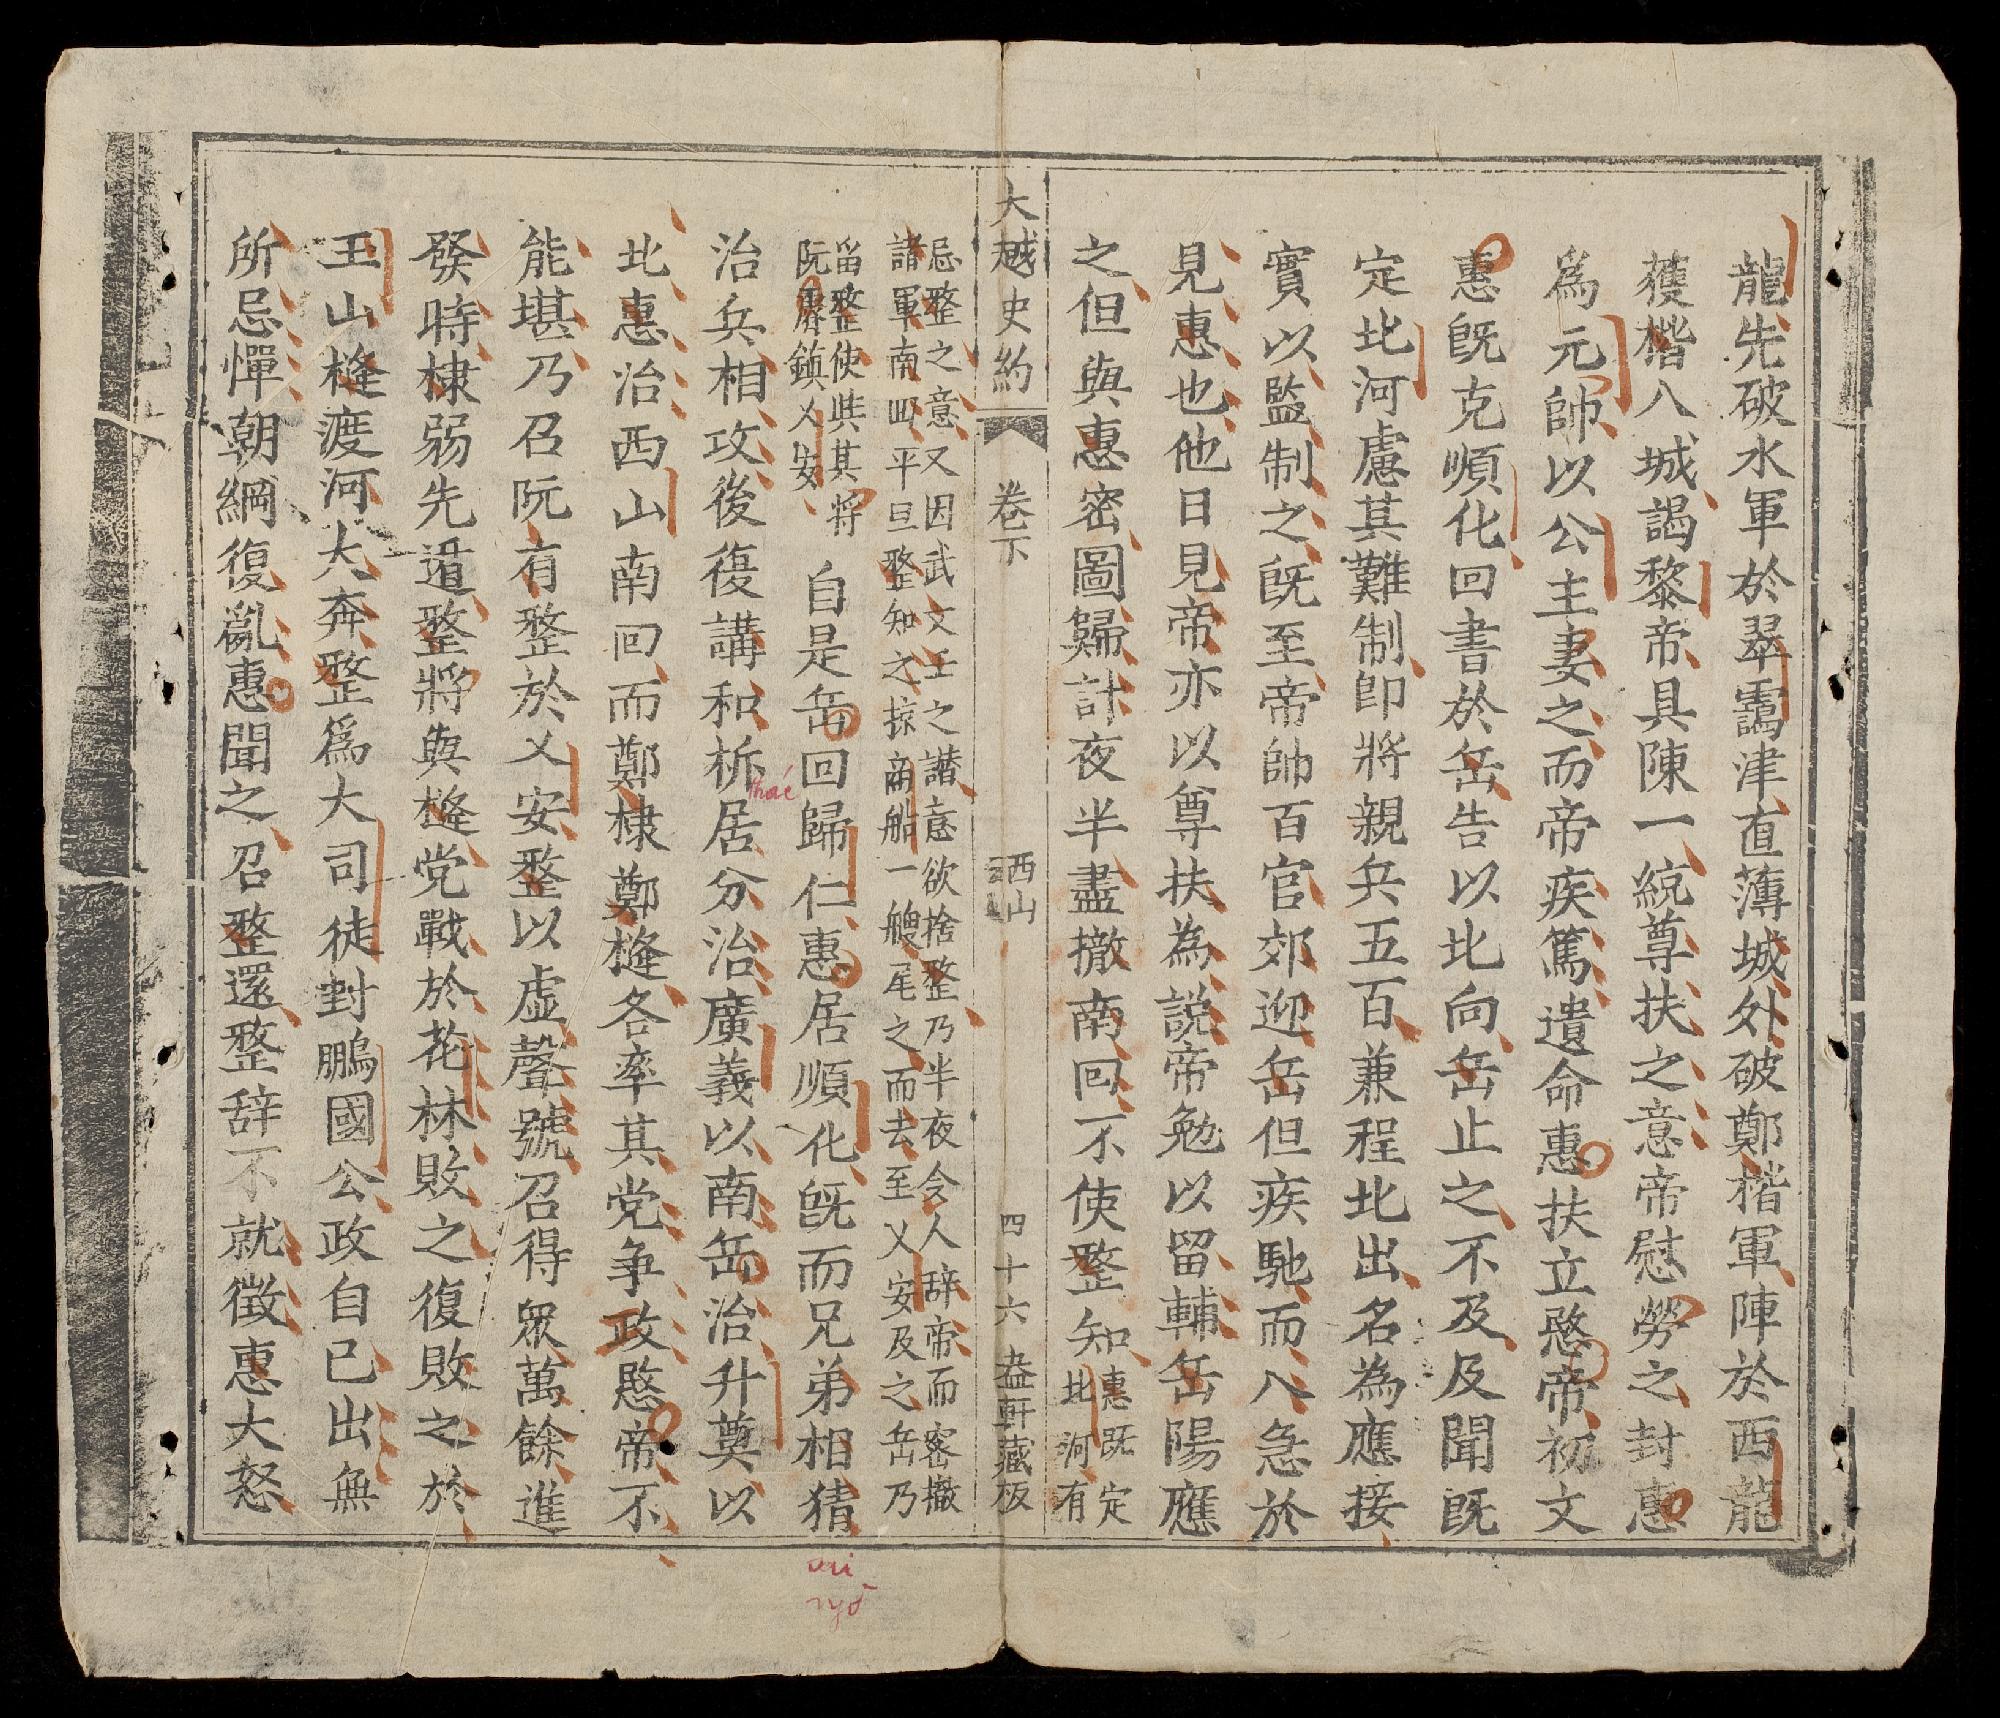 龍先破水軍於翠靄津直薄城外破鄭楷軍陣於西龍
獲楷入城謁黎帝具陳一統尊扶之意帝慰勞之封惠
爲元帥以公主妻之而帝疾篤遺命惠扶立愍帝初文
惠既克順化回書於岳告以北向岳止之不及及聞既
定北河慮其難制即將親兵五百兼程北出名為應接
實以監制之既至帝帥百官郊迎岳但疾馳而入急於
見惠也他日見帝亦以尊扶為説帝勉以留輔岳陽應
之但與惠密圖歸計夜半盡撤南回不使整知
惠既定
北河有
大越史約 卷下 西山 四十六 益軒藏板
忌整之意又因武文壬之譖意欲捨整乃半夜令人辞帝而密撤
諸軍南回平旦整知之掠商船一艘尾之而去至乂安及之岳乃
留整使與其將
阮睿鎮乂安
自是岳回歸仁惠居順化既而兄弟相猜
治兵相攻後復講和柝居分治廣義以南岳治升奠以
北惠治西山南回而鄭棣鄭槰各率其党争政愍帝不
能堪乃召阮有整於乂安整以虚聲號召得眾萬餘進
發時棣弱先遁整將與槰党戰於花林敗之復敗之於
玉山槰渡河大奔整爲大司徒封鵬國公政自已出無
所忌憚朝綱復亂惠聞之召整還整辞不就徵惠大怒
thác
ngờ